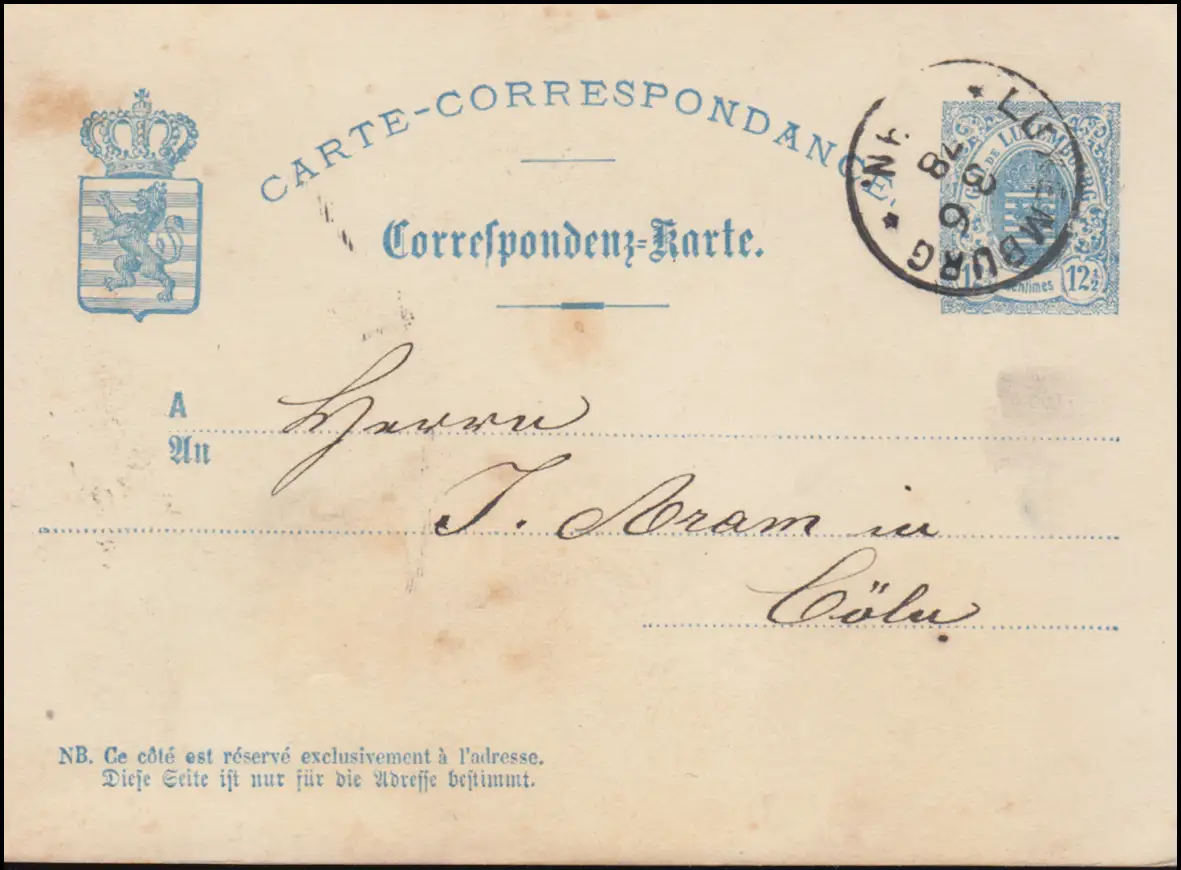 CARTE-CORRESPONDANCE
Correspondenz-Karte.
* LUXEMBURG *
6
8
78
G DE LUXEMBOURG
12½
centimes
A
An
Herrn
J. Aram in
Cöln
NB. Ce côté est réservé exclusivement à l'adresse.
Diese Seite ist nur für die Adresse bestimmt.